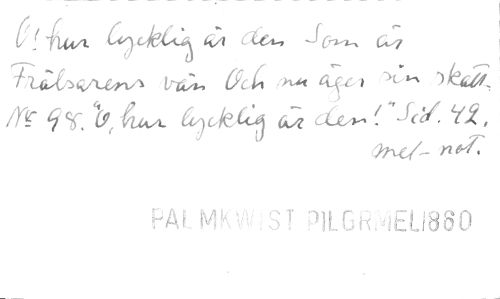 O! hur lycklig är den Som är
Frälsarens vän Och nu äger sin skatt.
Nr 98. "O, hur lycklig är den!" Sid. 42.
mel-not.
PALMKWIST PILGRMEL1880